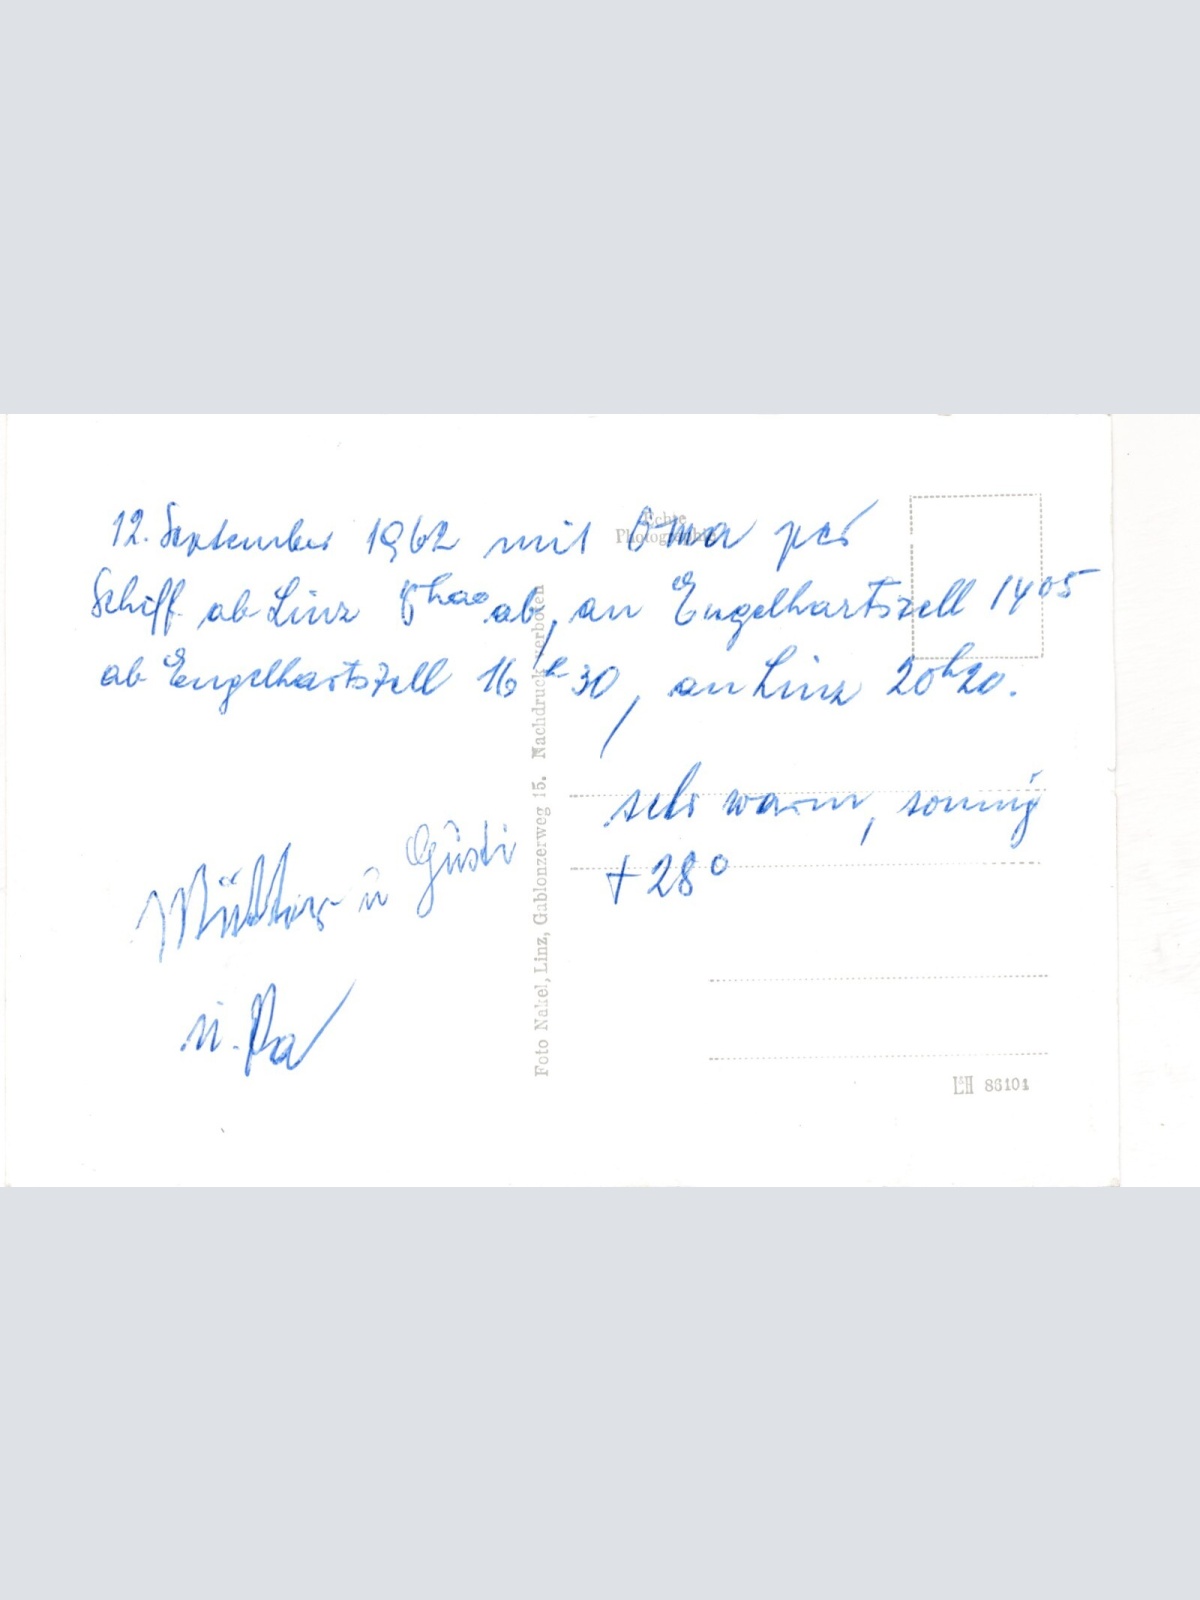 12. September 1962 mit Oma per
Schiff ab Linz 8h00 ab, an Engelhartszell 1405
ab Engelhartszell 16h30, an Linz 20h20.
sehr warm, sonnig
+28°
Mutter u Gusti
u. Pa
Echte
Photographie
Foto Nakel, Linz, Gablonzerweg 15. Nachdruck verboten
86101